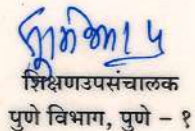 शिक्षणउपसंचालक
पुणे विभाग, पुणे – १